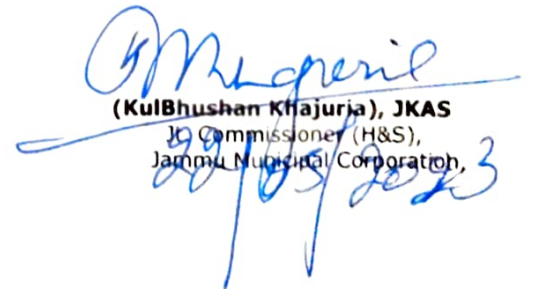 (KulBhushan Khajuria), JKAS
Jt. Commissioner (H&S),
Jammu Municipal Corporation,
22/05/2023